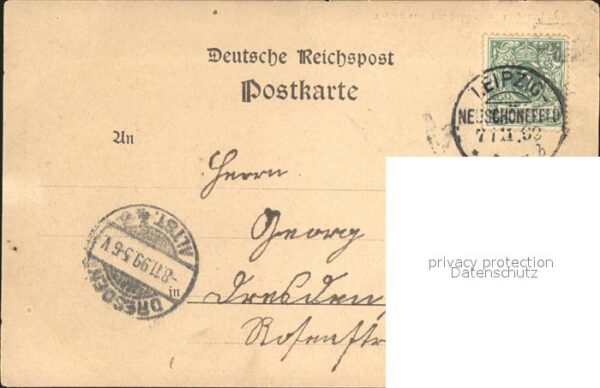 Deutsche Reichspost
Postkarte
LEIPZIG
NEUSCHÖNEFELD
7 11. 99
An
Herrn
Georg
in Dresden
Rosenstr
DRESDEN
-8.11.99.5-6V
ALTST.
privacy protection
Datenschutz